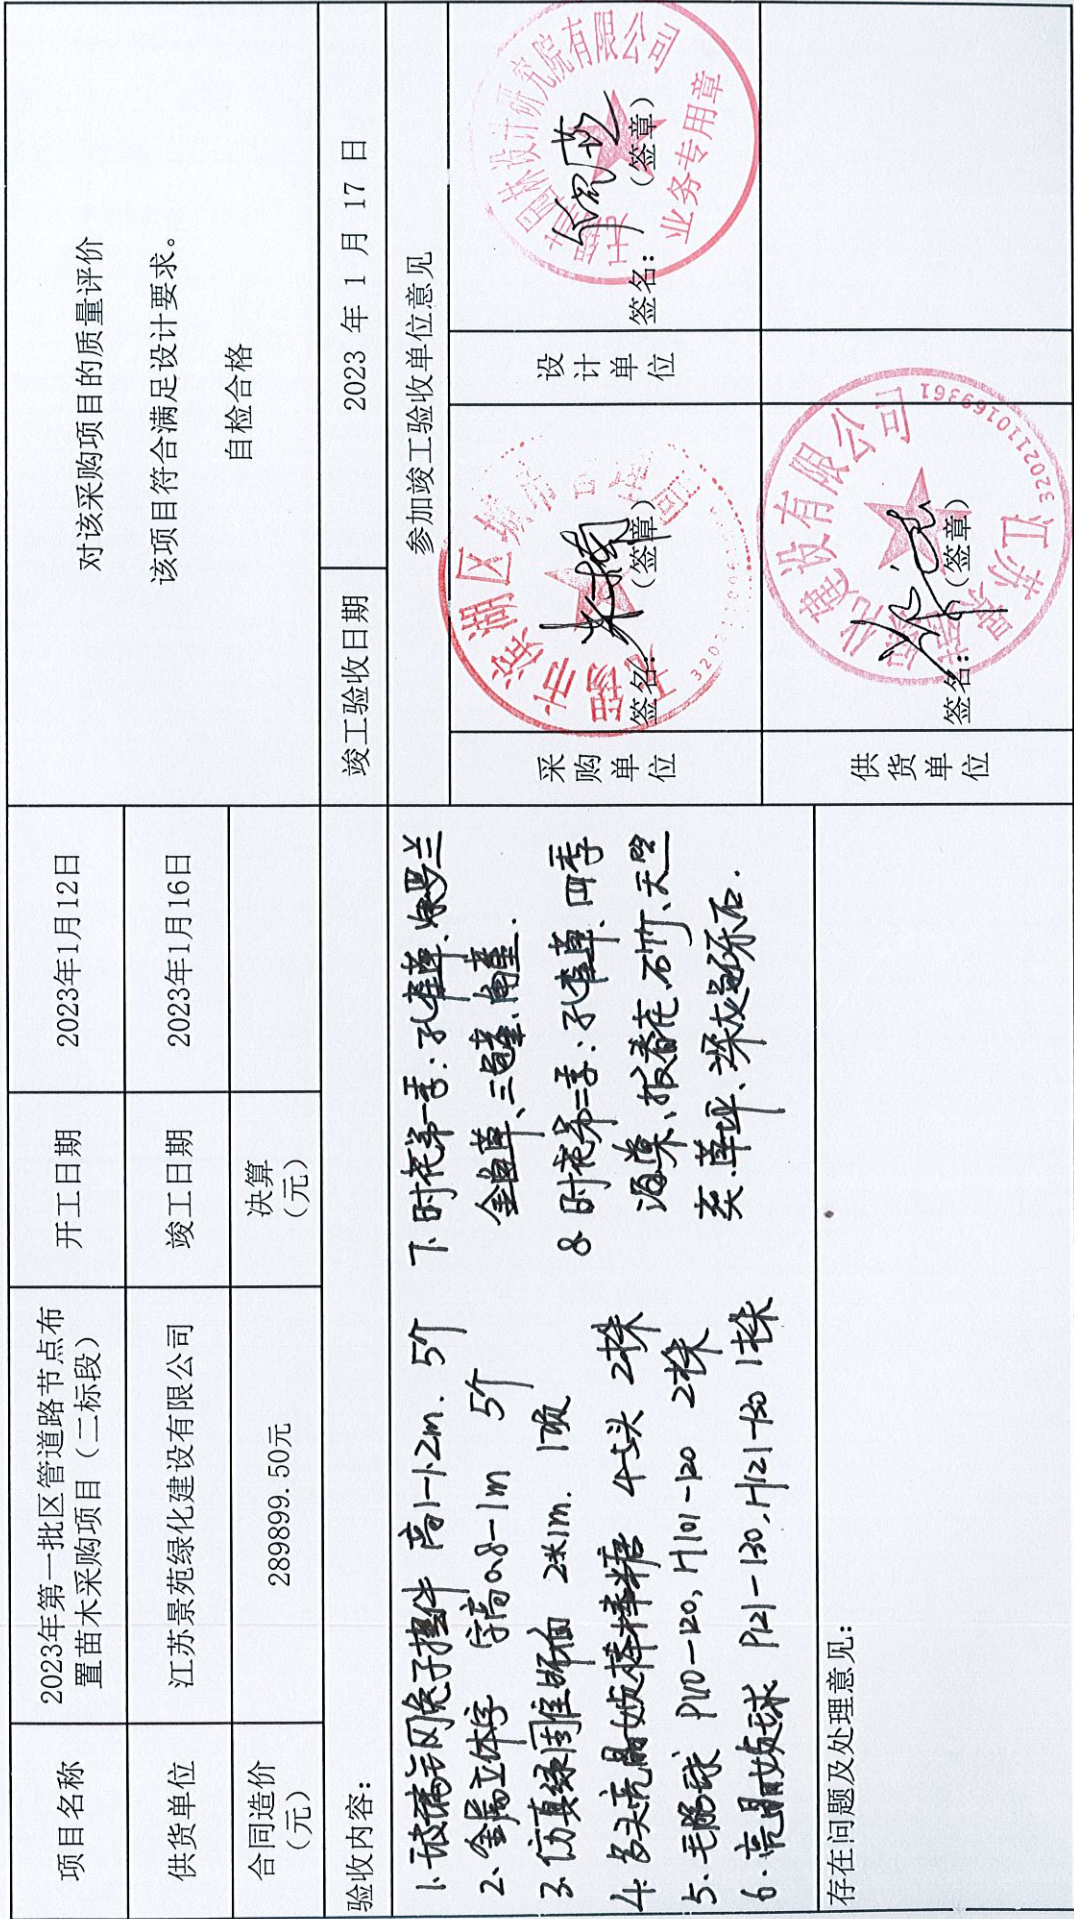 项目名称
2023年第一批区管道路节点布
置苗木采购项目（二标段）
开工日期
2023年1月12日
供货单位
江苏景苑绿化建设有限公司
竣工日期
2023年1月16日
合同造价
（元）
289899.50元
决算
（元）
对该采购项目的质量评价
该项目符合满足设计要求。
自检合格
竣工验收日期
2023 年 1 月 17 日
验收内容：
1.玻璃钢兔子摆件 高1-1.2m. 5个
2、金属立体字 字高0.8-1m 5个
3、仿真绿围挡 2*1m. 1项
4、多头亮晶女贞棒棒糖 4-5头 2株
5、毛鹃球 P110-120, H101-120 2株
6、亮晶女贞球 P121-130, H121-130 1株
7、时花第一季：孔雀草、
金鱼草、三色堇、角堇.
8、时花第二季：孔雀草、四季
海棠、报春花、石竹、天竺
葵、草坪、深灰色砾石.
存在问题及处理意见：
参加竣工验收单位意见
采购单位
签名：
（签章）
无锡市滨湖区城市管理局
设计单位
签名：
（签章）
园林设计研究院有限公司
业务专用章
供货单位
签名：
（签章）
江苏景苑绿化建设有限公司
3202110169361